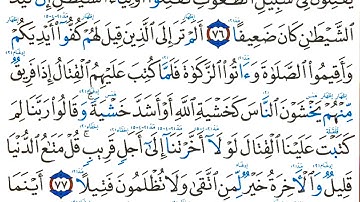 يُقَٰتِلُونَ فِى سَبِيلِ ٱلطَّٰغُوتِ فَقَٰتِلُوٓا۟ أَوْلِيَآءَ ٱلشَّيْطَٰنِ إِنَّ كَيْدَ
ٱلشَّيْطَٰنِ كَانَ ضَعِيفًا ٧٦ أَلَمْ تَرَ إِلَى ٱلَّذِينَ قِيلَ لَهُمْ كُفُّوٓا۟ أَيْدِيَكُمْ
وَأَقِيمُوا۟ ٱلصَّلَوٰةَ وَءَاتُوا۟ ٱلزَّكَوٰةَ فَلَمَّا كُتِبَ عَلَيْهِمُ ٱلْقِتَالُ إِذَا فَرِيقٌ
مِّنْهُمْ يَخْشَوْنَ ٱلنَّاسَ كَخَشْيَةِ ٱللَّهِ أَوْ أَشَدَّ خَشْيَةً وَقَالُوا۟ رَبَّنَا لِمَ
كَتَبْتَ عَلَيْنَا ٱلْقِتَالَ لَوْلَآ أَخَّرْتَنَآ إِلَىٰٓ أَجَلٍ قَرِيبٍ قُلْ مَتَٰعُ ٱلدُّنْيَا
قَلِيلٌ وَٱلْءَاخِرَةُ خَيْرٌ لِّمَنِ ٱتَّقَىٰ وَلَا تُظْلَمُونَ فَتِيلًا ٧٧ أَيْنَمَا